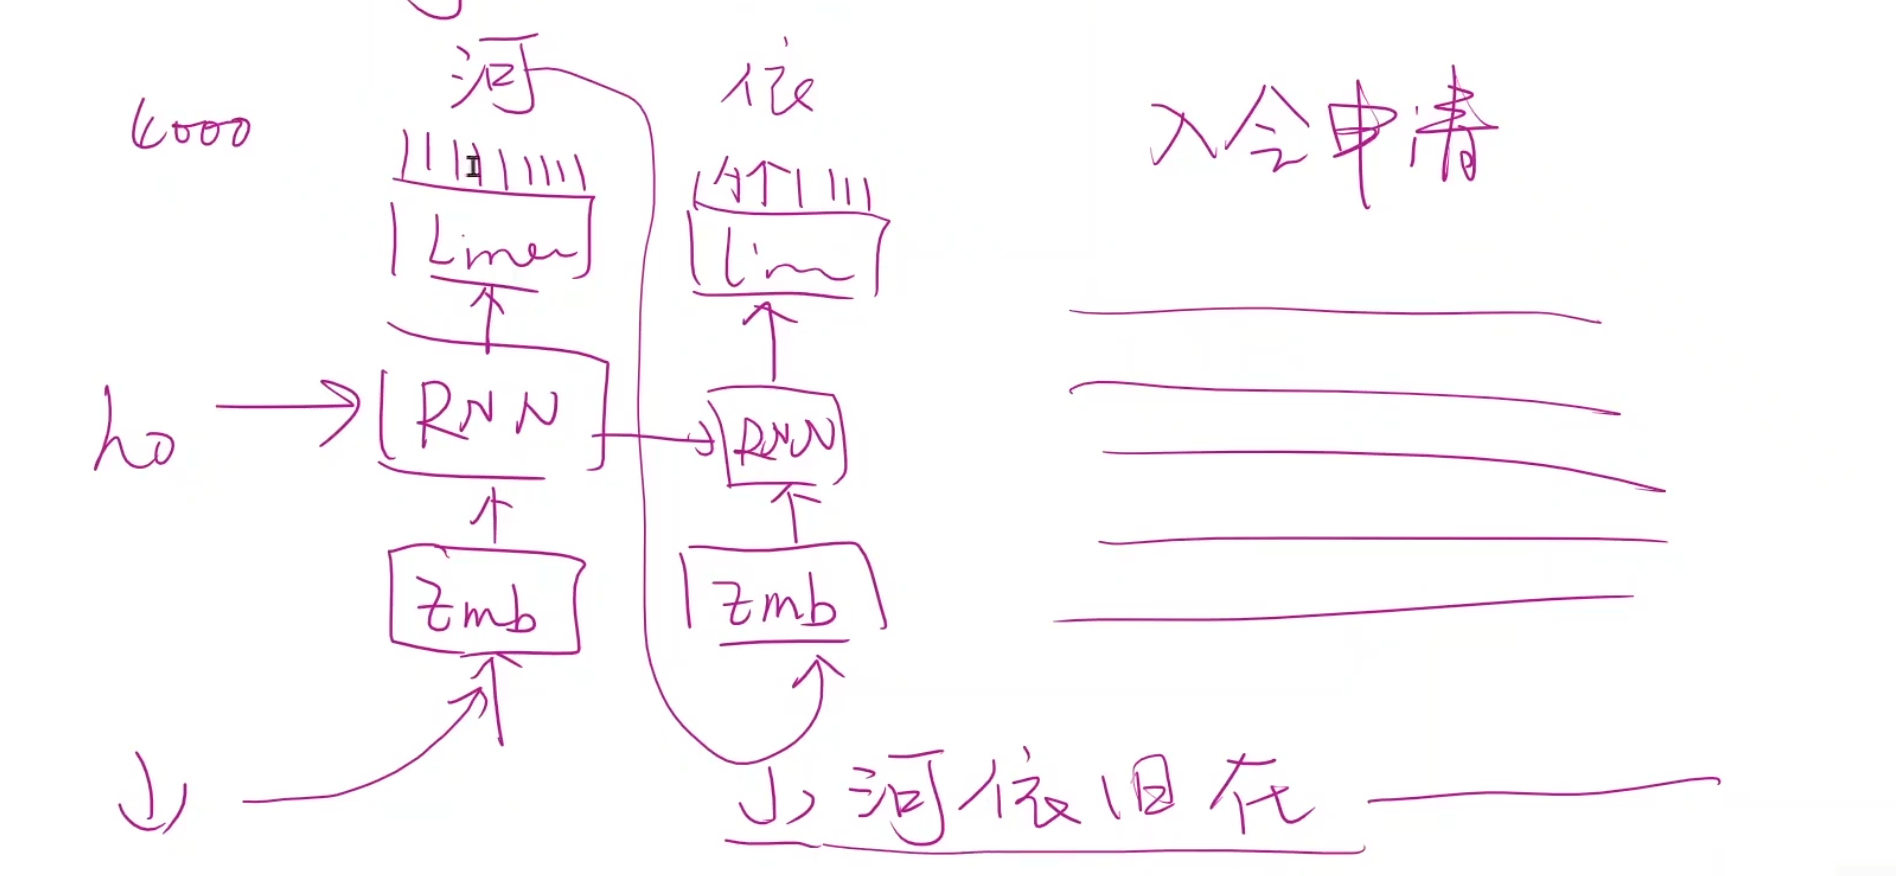 河 依
4000
入会申请
Linear lin
h0 RNN RNN
Emb Emb
山
山河依旧在